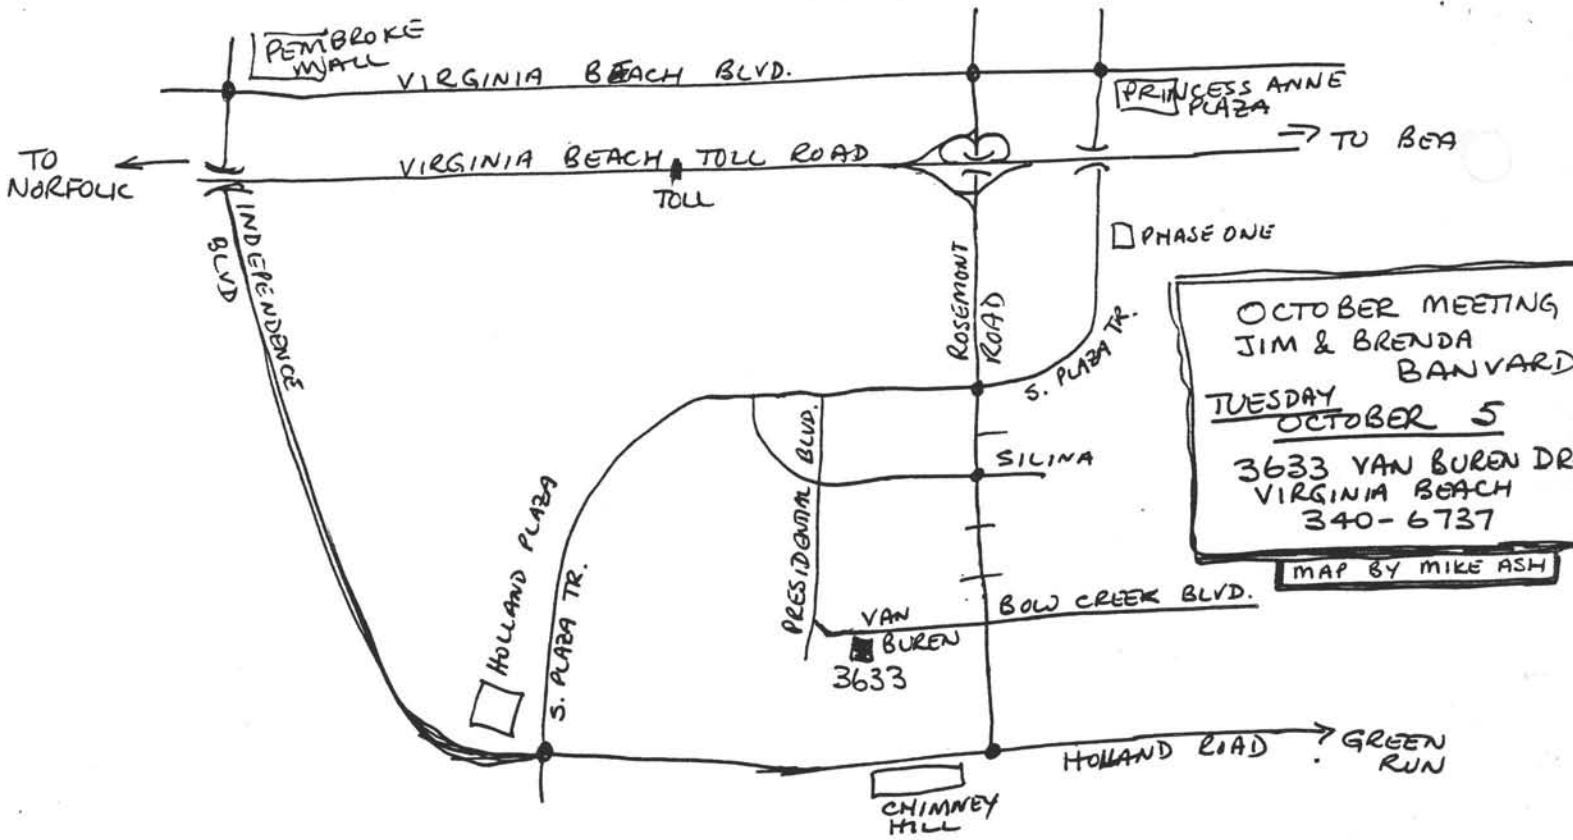 PEMBROKE
MALL
VIRGINIA BEACH BLVD.
PRINCESS ANNE
PLAZA
TO
NORFOLK
VIRGINIA BEACH TOLL ROAD
TO BEA
TOLL
INDEPENDENCE
BLVD
PHASE ONE
ROSEMONT
ROAD
S. PLAZA TR.
OCTOBER MEETING
JIM & BRENDA
BANVARD
TUESDAY
OCTOBER 5
3633 VAN BUREN DR
VIRGINIA BEACH
340-6737
MAP BY MIKE ASH
PRESIDENTIAL BLVD.
SILINA
HOLLAND PLAZA
S. PLAZA TR.
VAN
BUREN
3633
BOW CREEK BLVD.
HOLLAND ROAD
GREEN
RUN
CHIMNEY
HILL